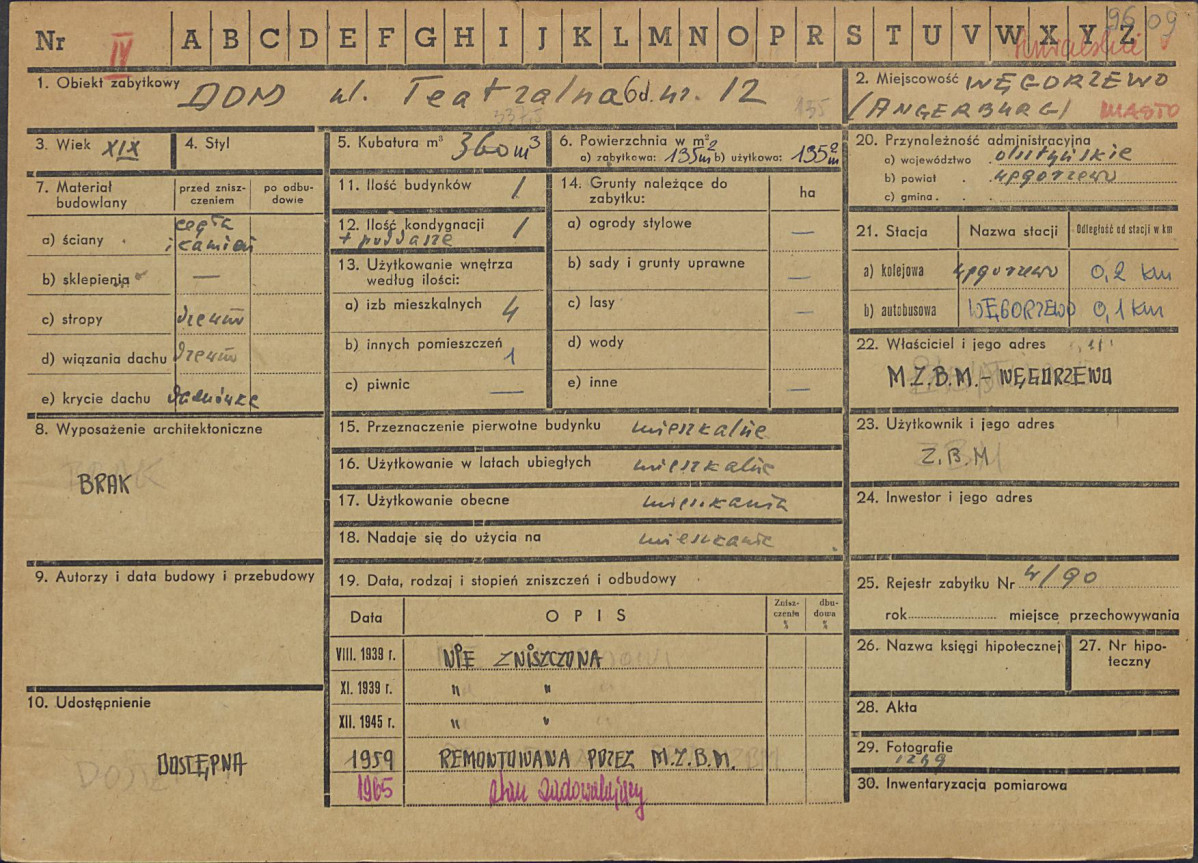 Nr IV A B C D E F G H I J K L M N O P R S T U V W X Y Z 9609
1. Obiekt zabytkowy DOM ul. Teatralna 6d. nr. 12
337,5 135
2. Miejscowość WĘGORZEWO
/ANGERBURG/ MIASTO
3. Wiek XIX
4. Styl
5. Kubatura m³ 360 m³
6. Powierzchnia w m²
a) zabytkowa: 135 m² b) użytkowa: 135 m²
20. Przynależność administracyjna
a) województwo olsztyńskie
b) powiat węgorzewo
c) gmina
7. Materiał budowlany
przed zniszczeniem
po odbudowie
a) ściany cegła
i kamień
b) sklepienia —
c) stropy drewno
d) wiązania dachu drewno
e) krycie dachu dachówka
11. Ilość budynków 1
12. Ilość kondygnacji 1
+ poddasze
13. Użytkowanie wnętrza
według ilości:
a) izb mieszkalnych 4
b) innych pomieszczeń 1
c) piwnic —
14. Grunty należące do
zabytku:
ha
a) ogrody stylowe —
b) sady i grunty uprawne —
c) lasy —
d) wody
e) inne —
21. Stacja
Nazwa stacji
Odległość od stacji w km
a) kolejowa węgorzewo 0,2 km
b) autobusowa WĘGORZEWO 0,1 km
22. Właściciel i jego adres
M.Z.B.M. - WĘGORZEWO
8. Wyposażenie architektoniczne
BRAK
15. Przeznaczenie pierwotne budynku mieszkalne
16. Użytkowanie w latach ubiegłych mieszkalne
17. Użytkowanie obecne mieszkania
18. Nadaje się do użycia na mieszkanie
23. Użytkownik i jego adres
Z.B.M
24. Inwestor i jego adres
9. Autorzy i data budowy i przebudowy
19. Data, rodzaj i stopień zniszczeń i odbudowy
Data
OPIS
Zniszczenie %
dbudowa %
VIII. 1939 r. NIE ZNISZCZONA
XI. 1939 r. " "
XII. 1945 r. " "
1959 REMONTOWANA PRZEZ M.Z.B.M.
1965 stan zadowalający
25. Rejestr zabytku Nr 4/90
rok miejsce przechowywania
26. Nazwa księgi hipotecznej
27. Nr hipoteczny
10. Udostępnienie
DOSTĘPNA
28. Akta
29. Fotografie
1299
30. Inwentaryzacja pomiarowa